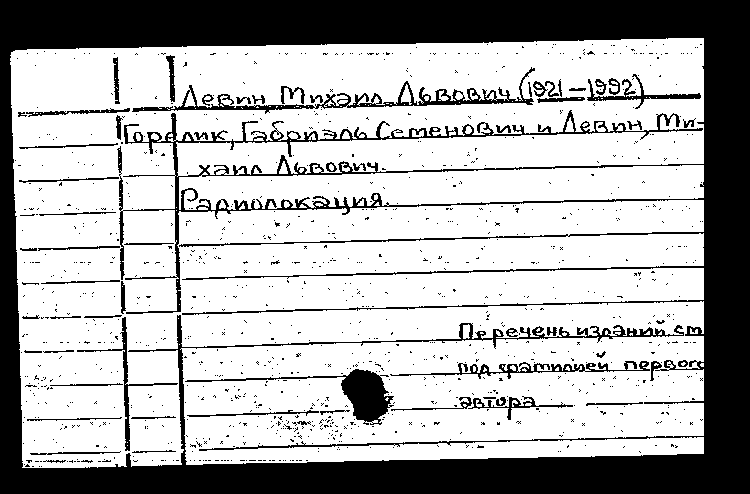 Левин, Михаил Львович (1921-1992)
Горелик, Габриэль Семенович и Левин, Ми-
хаил Львович.
Радиолокация.
Перечень изданий см
под фамилией первого
автора